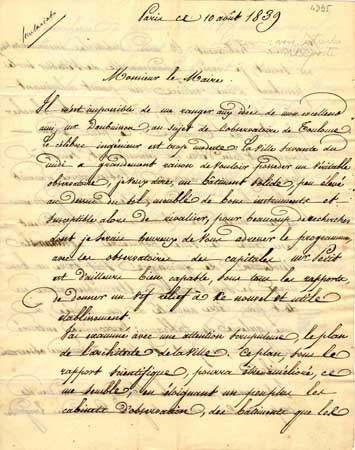 Paris ce 10 août 1839
4395
Monsieur le Maire.
Il m'est impossible de me ranger aux idées de mon excellent
ami Mr Daubuisson, au sujet de l'observatoire de Toulouse
le célèbre ingénieur est trop modeste la Ville Savante du
midi a grandement raison de vouloir fonder un véritable
observatoire, je veux dire, un bâtiment solide, peu élevé
au dessus du sol, meublé de bons instruments et
susceptible alors de rivaliser, pour beaucoup de recherches
dont je serais heureux de vous adresser le programme
avec les observatoires des capitales. Mr Petit
est d'ailleurs bien capable, sous tous les rapports
de donner un vif relief à ce nouvel et utile
établissement.
J'ai examiné avec une attention scrupuleuse, le plan
de l'architecte de la Ville. Ce plan, sous le
rapport scientifique, pourra être amélioré, ce
me semble, en éloignant un peu plus les
cabinets d'observation, des bâtiments que les